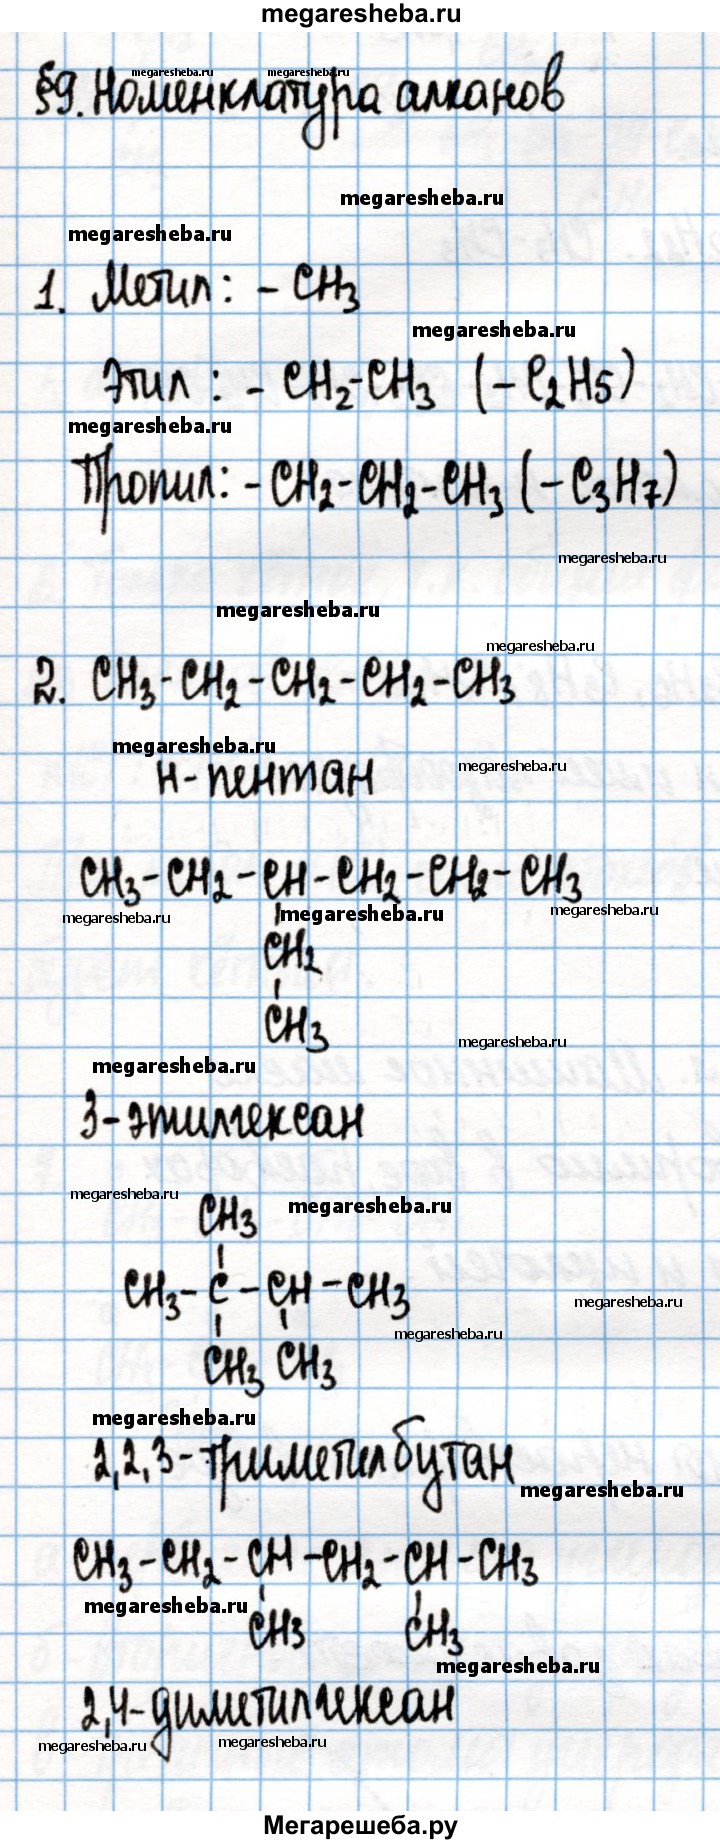 megaresheba.ru
§9. Номенклатура алканов
megaresheba.ru megaresheba.ru
megaresheba.ru
megaresheba.ru
1. Метил: - CH3
megaresheba.ru
Этил: - CH2-CH3 (-C2H5)
megaresheba.ru
Пропил: -CH2-CH2-CH3 (-C3H7)
megaresheba.ru
megaresheba.ru
megaresheba.ru
2. CH3-CH2-CH2-CH2-CH3
megaresheba.ru
н-пентан
megaresheba.ru
CH3-CH2-CH-CH2-CH2-CH3
megaresheba.ru megaresheba.ru megaresheba.ru
CH2
CH3
megaresheba.ru
megaresheba.ru
3-этилгексан
megaresheba.ru megaresheba.ru
CH3
CH3-C-CH-CH3
megaresheba.ru
megaresheba.ru
CH3 CH3
megaresheba.ru
2,2,3-триметилбутан
megaresheba.ru
CH3-CH2-CH-CH2-CH-CH3
megaresheba.ru
CH3 CH3
megaresheba.ru
2,4-диметилгексан
megaresheba.ru megaresheba.ru
Мегарешеба.ру